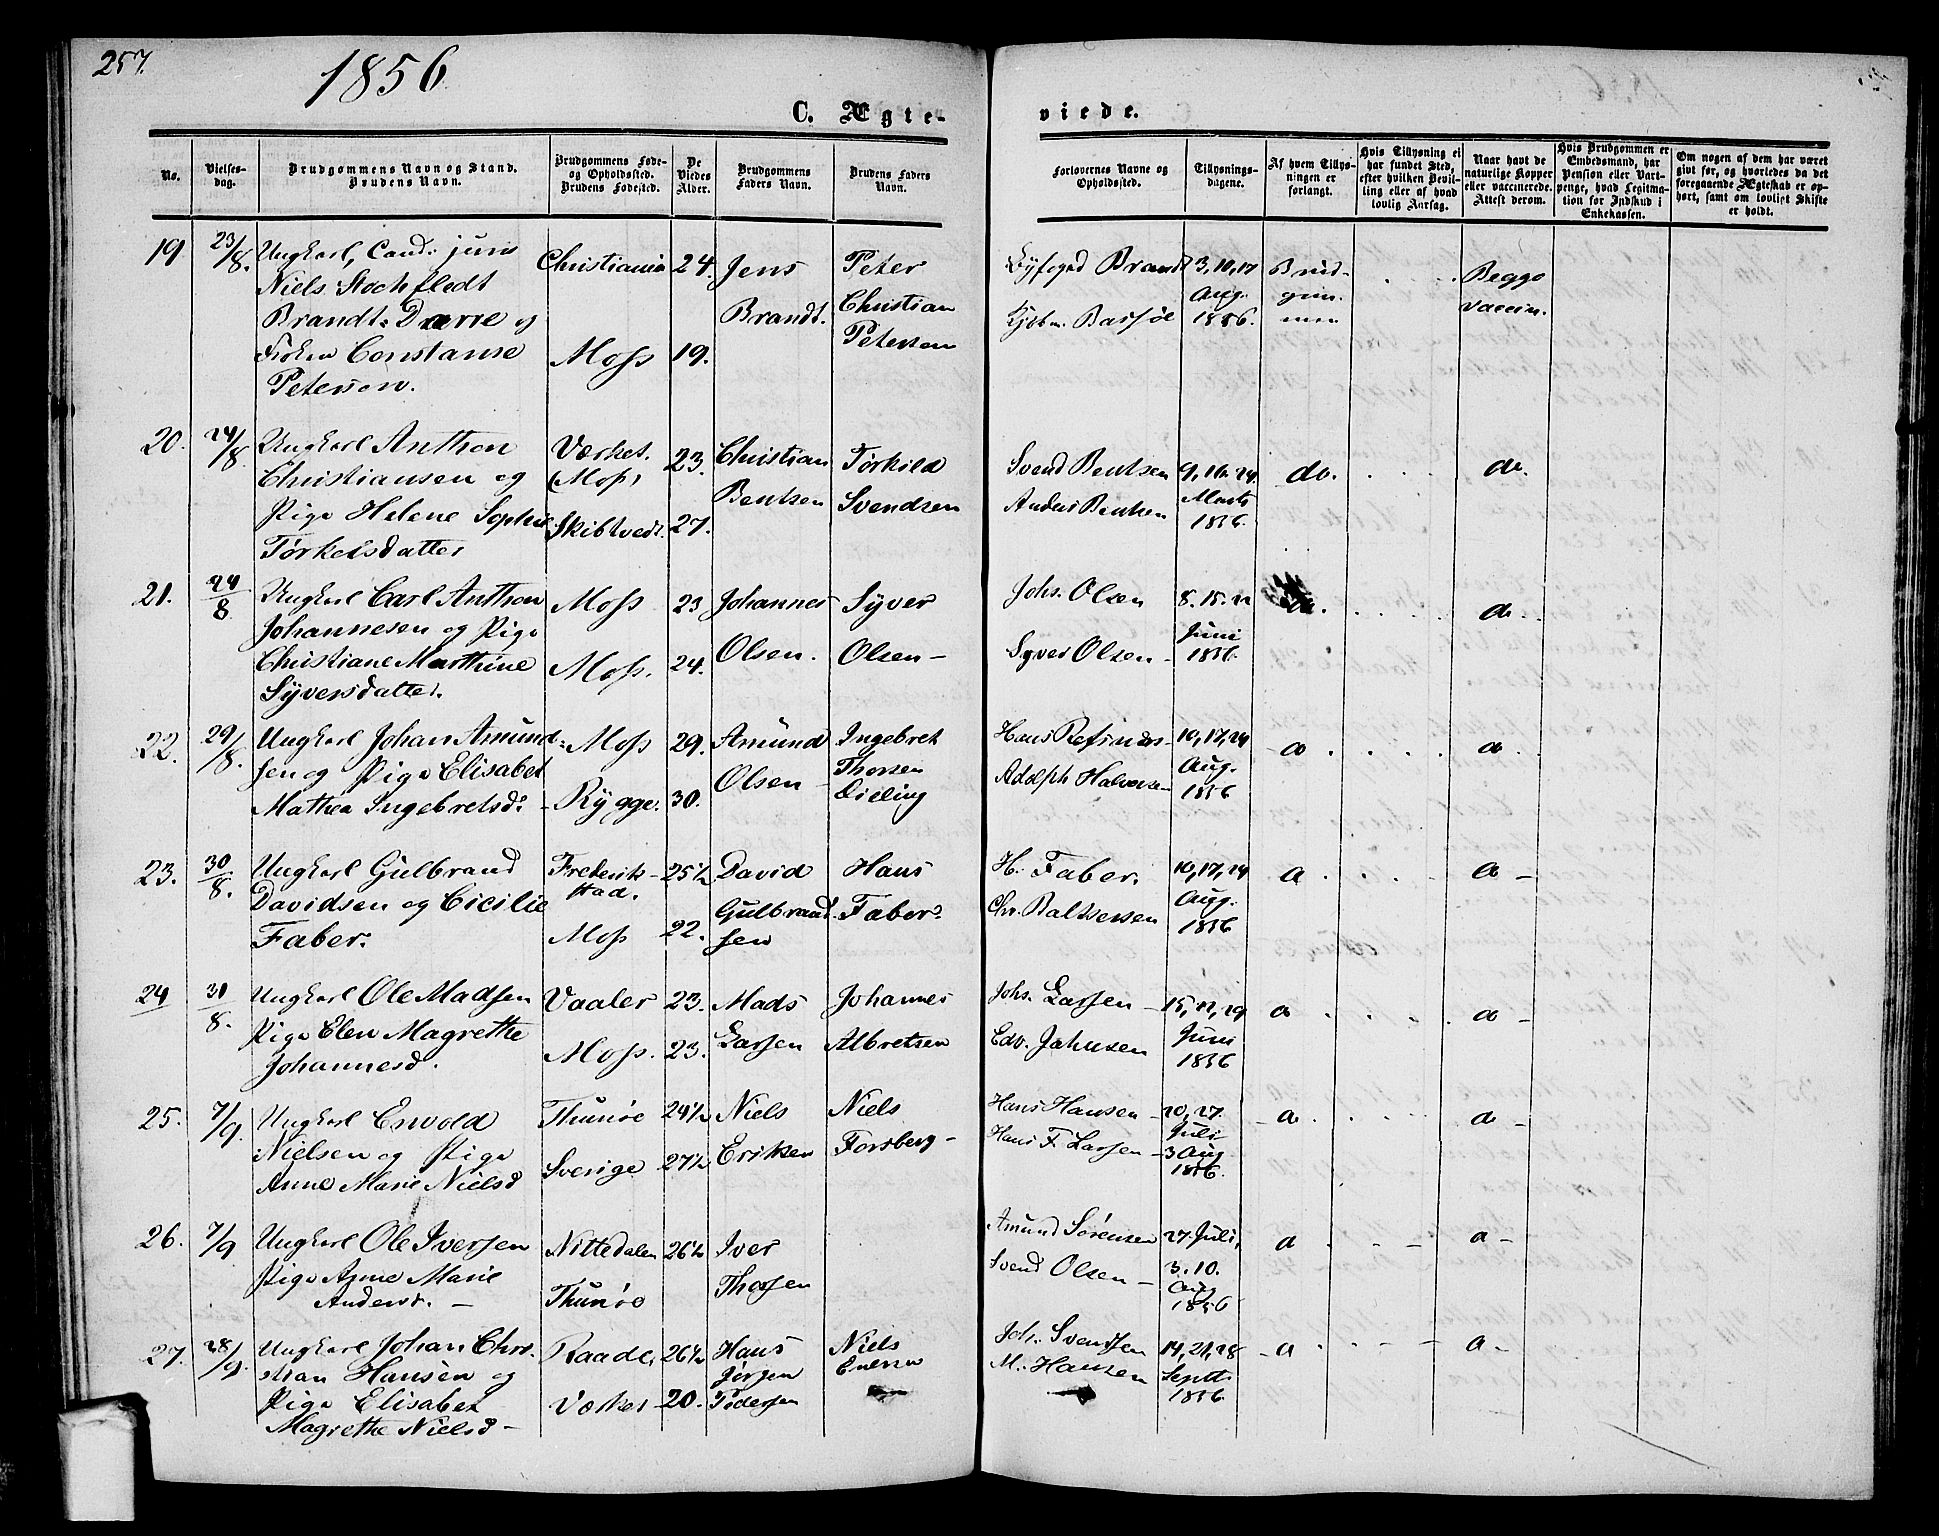 257.
1856
C. Ægte-
viede.
No.
Vielses-
dag.
Brudgommens Navn og Stand.
Brudens Navn.
Brudgommens Føde-
og Opholdssted.
Brudens Fødested.
De
Viedes
Alder.
Brudgommens
Faders Navn.
Brudens Faders
Navn.
Forlovernes Navne og
Opholdssted.
Tillysnings-
dagene.
Af hvem Tillys-
ningen er
forlangt.
Hvis Tillysning ei
har fundet Sted,
efter hvilken Bevil-
ling eller af hvad
lovlig Aarsag.
Naar havt de
naturlige Kopper
eller vaccinerede.
Attest derom.
Hvis Brudgommen er
Embedsmand, har
Pension eller Vart-
penge, hvad Legitima-
tion for Indskud i
Enkekassen.
Om nogen af dem har været
gift før, og hvorledes da det
foregaaende Ægteskab er op-
hørt, samt om lovligt Skifte
er holdt.
19.
23/8.
Ungkarl, Cand: juris
Niels Stochfledt
Brandt Dørre og
Frøken Constanse
Peterson.
Christiania
Moss
24.
19.
Jens
Brandt.
Peter
Christian
Petersen
Byfoged Brandt
Kjøbm. Bassøe
3, 10, 17
Aug.
1856.
Brud-
gom-
men
Begge
vaccin.
20.
24/8
Ungkarl Anthon
Christiansen og
Pige Helene Sophie
Torkelsdatter
Værket.
(Moss)
Skibtvedt.
23.
27.
Christian
Bentsen
Torkild
Svendsen
Svend Bentsen
Anders Bentsen
9, 16, 24
Marts
1856.
do.
do.
21.
24/8
Ungkarl Carl Anthon
Johannesen og Pige
Christiane Marthine
Syversdatter.
Moss
Moss.
23
24.
Johannes
Olsen.
Syver
Olsen -
Johs. Olsen
Syver Olsen -
8. 15. 22
Juni
1856.
do.
do.
22.
29/8.
Ungkarl Johan Amund-
sen og Pige Elisabet
Mathea Ingebretsd:
Moss
Rygge.
29.
30.
Amund
Olsen -
Ingebret
Thorsen
Hans Refsnæs -
Adolph Halvorsen
10, 17, 24
Aug.
1856
do
do
23.
30/8.
Ungkarl Gulbrand
Davidsen og Cicilie
Faber.
Frederik-
stad.
Moss
25 1/2
22.
David
Gulbrand-
sen
Hans
Faber.
H. Faber.
Chr. Baltsersen
10, 17, 24
Aug.
1856
do
do -
24
31/8.
Ungkarl Ole Madsen
Pige Elen Magrethe
Johannesd.
Vaaler
Moss.
23.
23.
Mads
Larsen
Johannes
Albretsen
Johs. Larsen -
Edv. Jahnsen
15, 22, 29
Juni
1856
do
do -
25.
7/9.
Ungkarl Envold
Nielsen og Pige
Anne Marie Nielsd
Thunøe
Sverige
24 1/2
27 1/2
Niels
Eriksen
Niels
Forsberg -
Hans Hansen -
Hans F. Larsen -
20, 27.
Juli
3 Aug
1856.
do
do -
26.
7/9
Ungkarl Ole Iversen
Pige Anne Marie
Andersd. -
Nittedalen
Thunøe
26 1/2
Iver
Thorsen
Amund Sørensen
Svend Olsen -
27 Juli,
3. 10.
Aug
1856
do
do -
27.
28/9.
Ungkarl Johan Chri-
stian Hansen og
Pige Elisabet
Magrethe Nielsd -
Raade,
Værket
26 1/2
20.
Hans
Jørgen
Pedersen
Niels
Enersen
Joh. Svendsen
M. Hansen
14, 21, 28
Septt.
1856.
do
do -